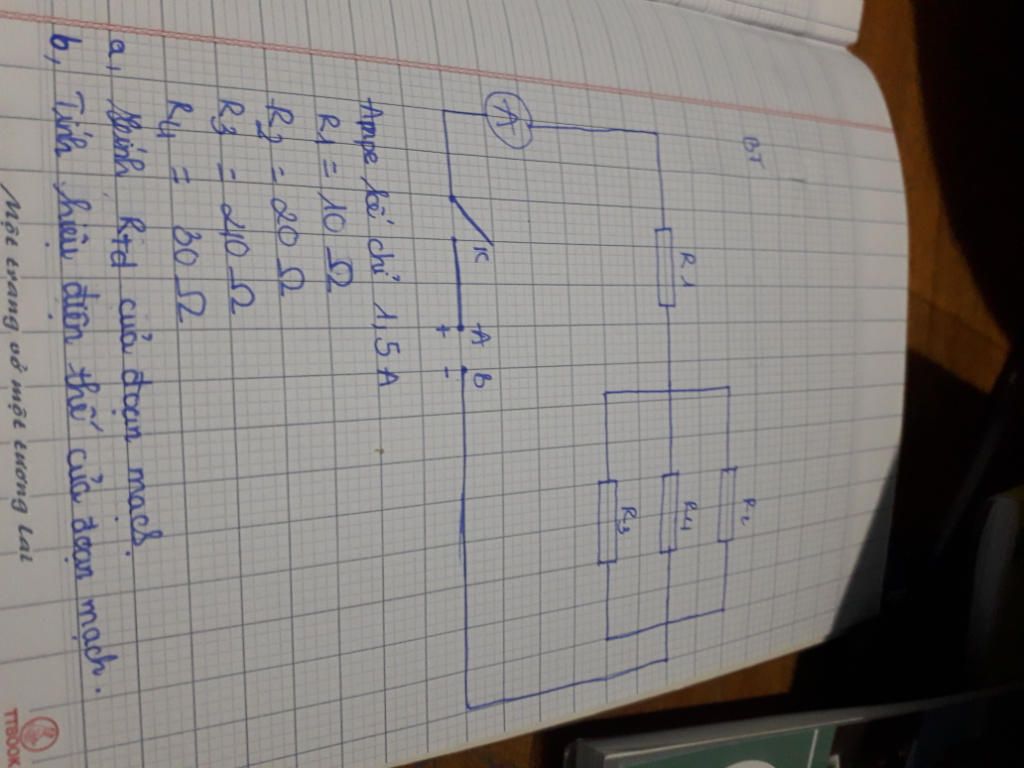 BT
R1
R2
R4
R3
A
K
A B
+ -
Ampe kế chỉ 1,5 A
R1 = 10 Ω
R2 = 20 Ω
R3 = 40 Ω
R4 = 30 Ω
a, Tính Rtđ của đoạn mạch.
b, Tính hiệu điện thế của đoạn mạch.
Một trang vở một tương lai
TTBOOK